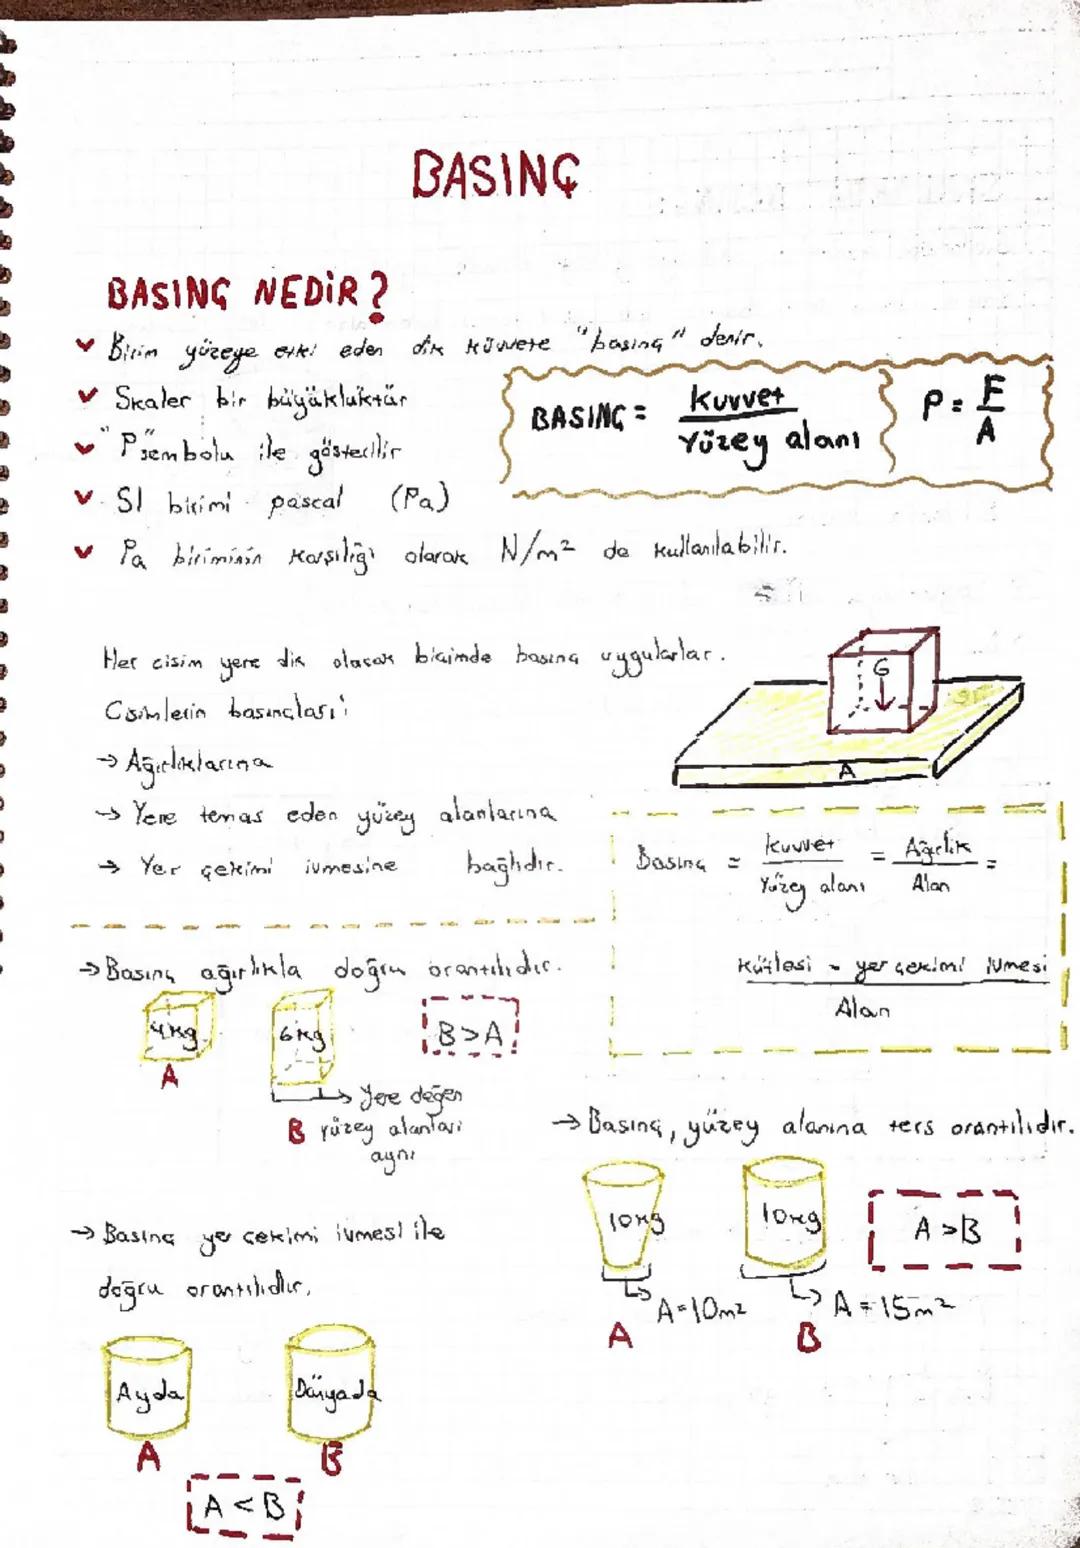 BASINÇ
BASINÇ NEDİR?
Birim yüzeye etki eden dik kuvvete "basınç" denir.
Skaler bir büyüklüktür
"P" sembolu ile gösterilir
SI birimi pascal (Pa)
Pa biriminin karşılığı olarak N/m² de kullanılabilir.
BASINÇ = Kuvvet
Yüzey alanı
P = F
A
Her cisim yere dik olacak biçimde basınç uygularlar.
Cisimlerin basınçları;
→ Ağırlıklarına
→ Yere temas eden yüzey alanlarına
→ Yer çekimi ivmesine bağlıdır.
G
A
Basınç = Kuvvet = Ağırlık =
Yüzey alanı Alan
Kütlesi . yer çekimi ivmesi
Alan
→ Basınç ağırlıkla doğru orantılıdır.
4kg 6kg B>A
A
→ Yere değen
B yüzey alanları
aynı
→ Basınç, yüzey alanına ters orantılıdır.
10kg 10kg A>B
A=10m² A=15m²
A B
→ Basınç yer çekimi ivmesi ile
doğru orantılıdır.
Ayda Dünyada
A B
A<B